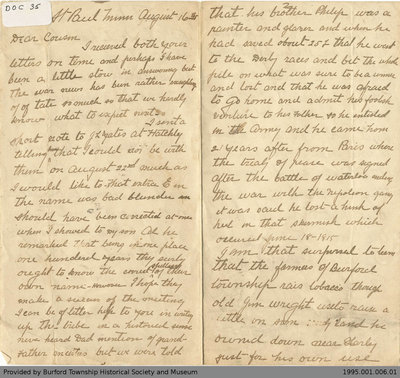 DOC 35
St Paul Minn August 16
Dear Cousin
I received both your
letters on time and perhaps I have
been a little slow in answering but
the war news has been rather
of late so much so that we hardly
know what to expect next
I sent a
short note to at Hatchly
telling that I could not be with
them on August 22nd much as
I would like to that extra E in
the name was bad
should have been corrected at once
when I showed to my son Cal he
remarked that being in one place
one hundred years they surely
ought to know the correct of their
own name I hope they
make a success of the meeting
I can be of little help to you in writing
up the tribe in a historical sense
never heard Dad mention of grand-
father ancestors but we were told
that his brother Philip was a
painter and glazer and when he
had saved about 25£ that he went
to the Derby races and bet the whole
pile on what was sure to be a winner
and lost and that he was afraid
to go home and admit his foolish
venture to his so he enlisted
in the Army and he came home
2 years after from Paris where
the treaty of peace was signed
after the battle of waterloo ending
the war with the Nepoleon gang
it was said he lost a hunk of
in that skirmish which
occured June 18-1815
I am that surprised to learn
that the farmers of Burford
township rais tobacco though
old Jim Wright used raise a
little on som land he
owned down near Harley
just for his own use
Provided by Burford Township Historical Society and Museum
1995.001.006.01